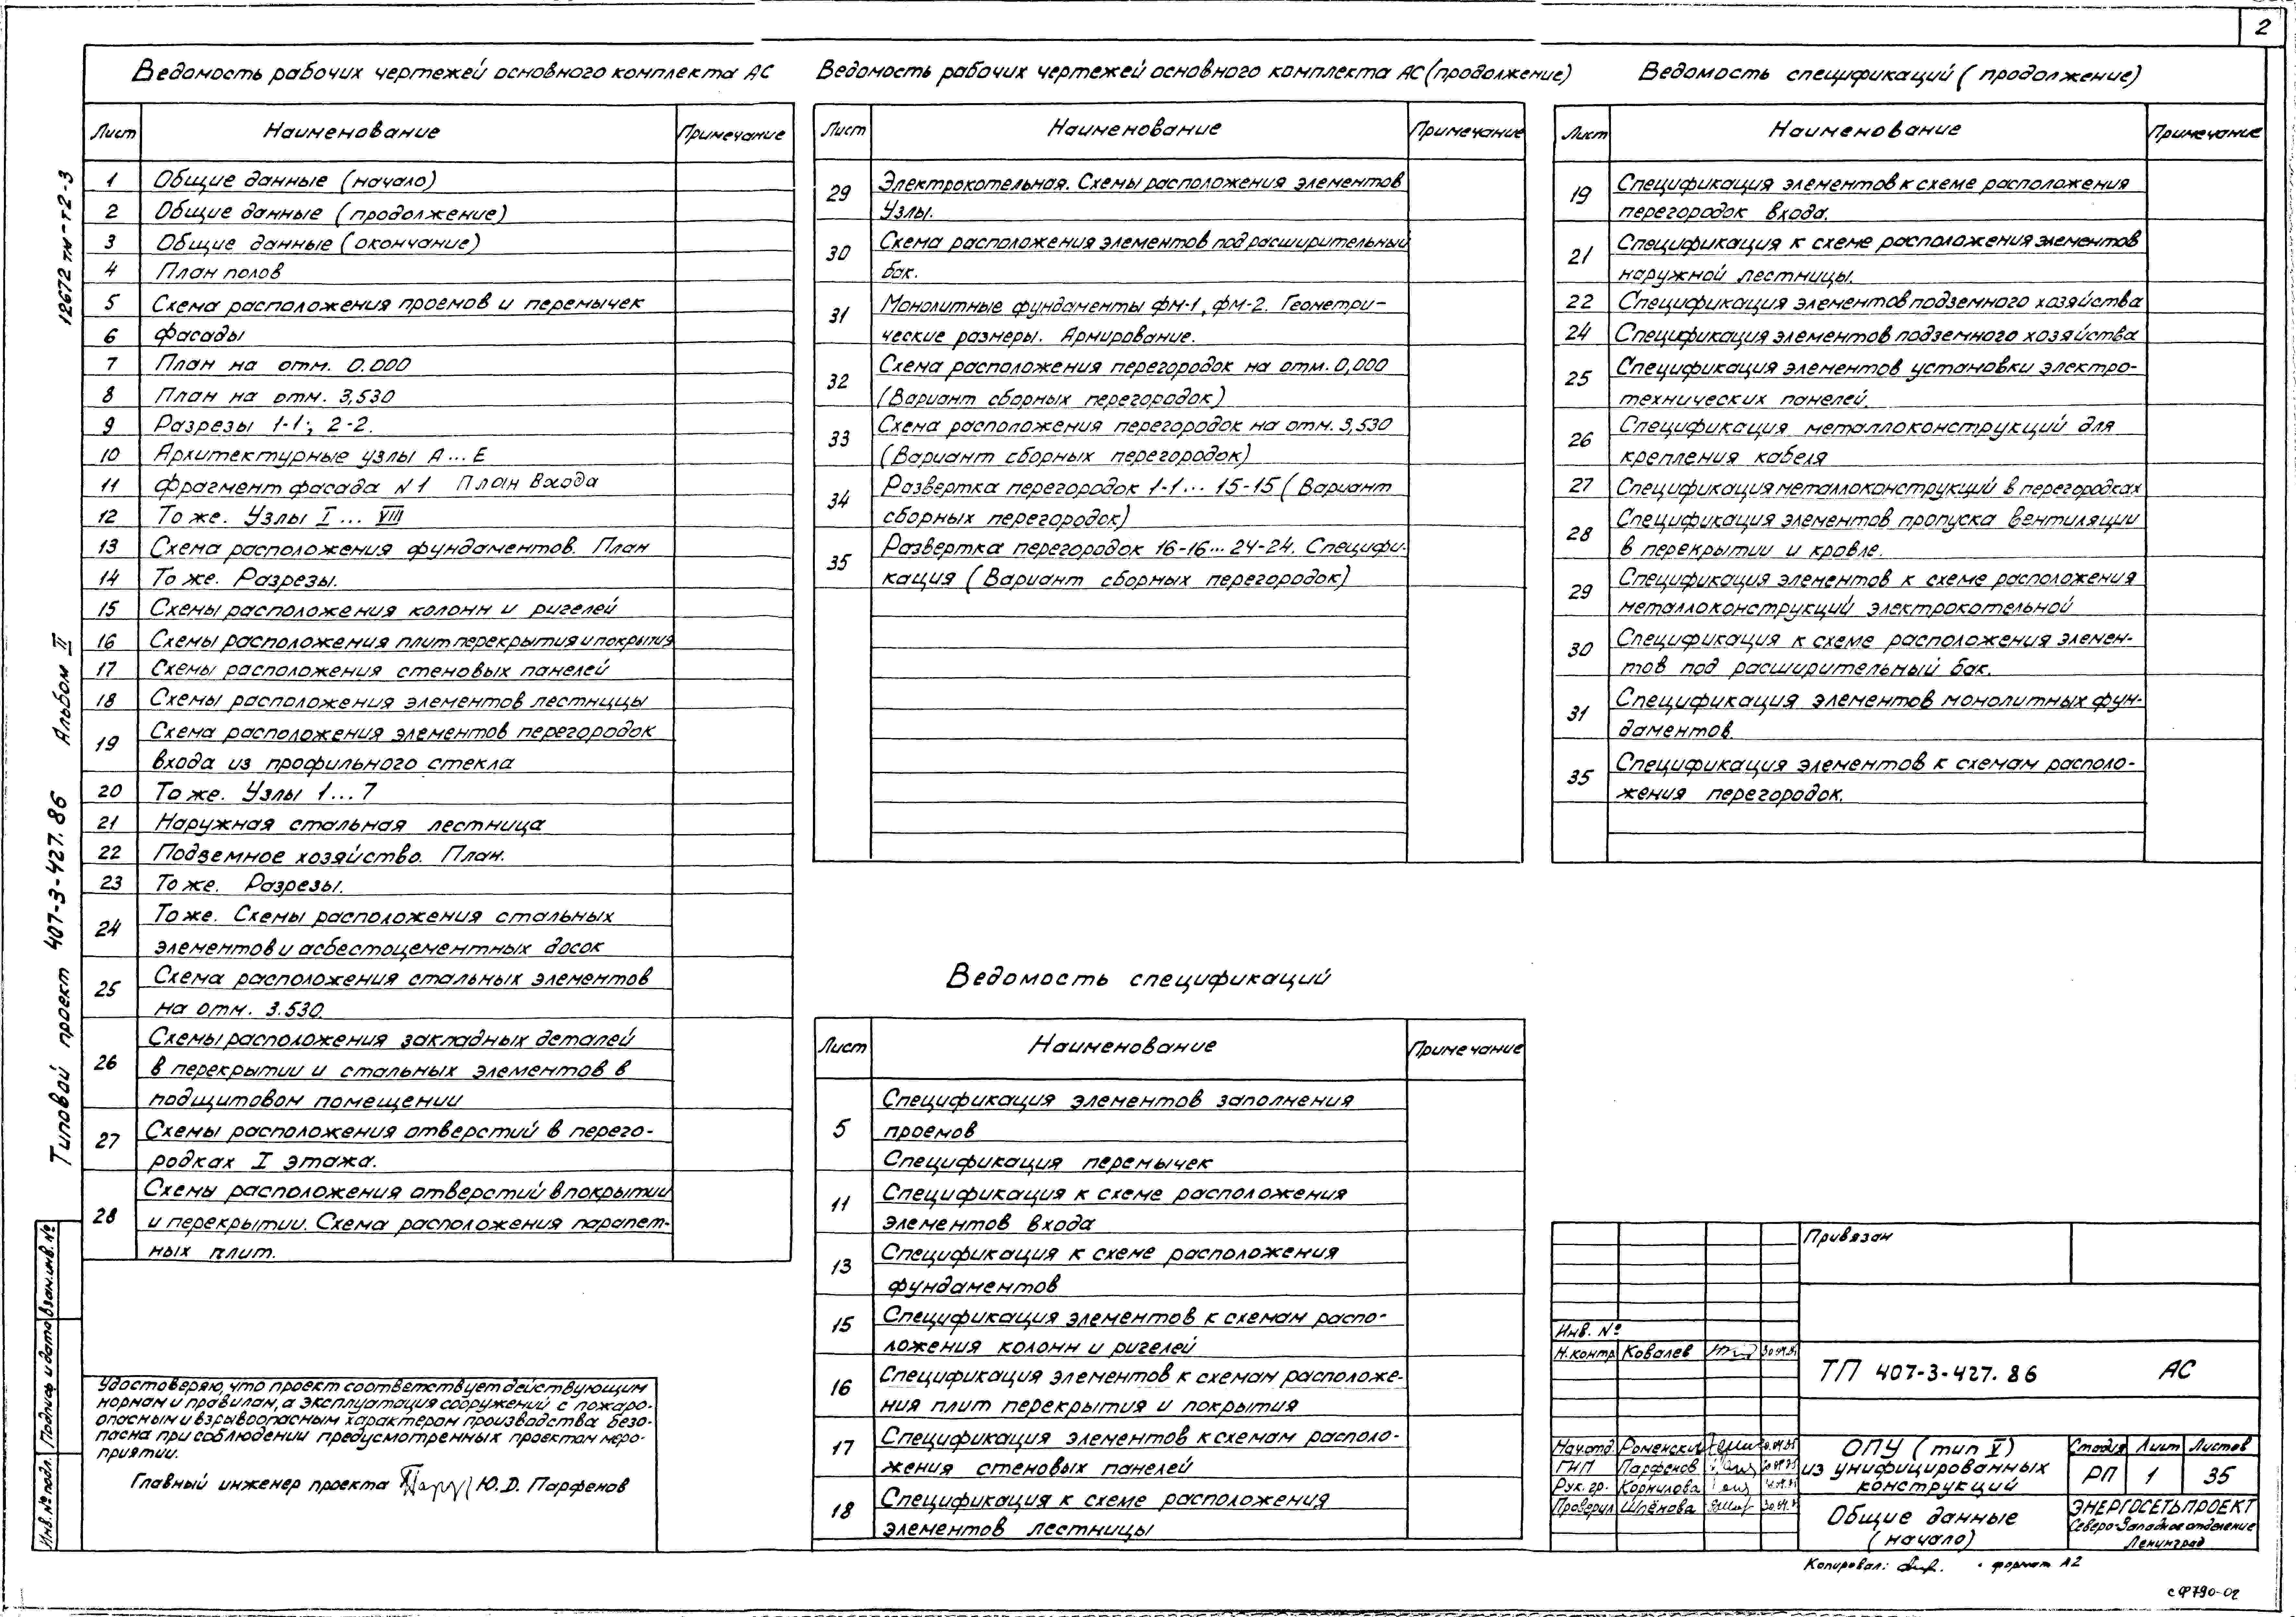 2
Ведомость рабочих чертежей основного комплекта АС
Лист Наименование Примечание
1 Общие данные (начало)
2 Общие данные (продолжение)
3 Общие данные (окончание)
4 План полов
5 Схема расположения проемов и перемычек
6 Фасады
7 План на отм. 0.000
8 План на отм. 3,530
9 Разрезы 1-1; 2-2.
10 Архитектурные узлы А...Е
11 Фрагмент фасада N1 План входа
12 То же. Узлы I ... VIII
13 Схема расположения фундаментов. План
14 То же. Разрезы.
15 Схемы расположения колонн и ригелей
16 Схемы расположения плит перекрытия и покрытия
17 Схемы расположения стеновых панелей
18 Схемы расположения элементов лестницы
19 Схема расположения элементов перегородок
входа из профильного стекла
20 То же. Узлы 1...7
21 Наружная стальная лестница
22 Подземное хозяйство. План.
23 То же. Разрезы.
24 То же. Схемы расположения стальных
элементов и асбестоцементных досок
25 Схема расположения стальных элементов
на отм. 3.530.
26 Схемы расположения закладных деталей
в перекрытии и стальных элементов в
подщитовом помещении
27 Схемы расположения отверстий в перего-
родках I этажа.
28 Схемы расположения отверстий в покрытии
и перекрытии. Схема расположения парапет-
ных плит.
Ведомость рабочих чертежей основного комплекта АС (продолжение)
Лист Наименование Примечание
29 Электрокотельная. Схемы расположения элементов
Узлы.
30 Схема расположения элементов под расширительный
бак.
31 Монолитные фундаменты фм-1, фм-2. Геометри-
ческие размеры. Армирование.
32 Схема расположения перегородок на отм. 0,000
(Вариант сборных перегородок)
33 Схема расположения перегородок на отм. 3,530
(Вариант сборных перегородок)
34 Развертка перегородок 1-1... 15-15 (Вариант
сборных перегородок)
35 Развертка перегородок 16-16... 24-24. Специфи-
кация (Вариант сборных перегородок)
Ведомость спецификаций
Лист Наименование Примечание
5 Спецификация элементов заполнения
проемов
Спецификация перемычек
11 Спецификация к схеме расположения
элементов входа
13 Спецификация к схеме расположения
фундаментов
15 Спецификация элементов к схемам распо-
ложения колонн и ригелей
16 Спецификация элементов к схемам расположе-
ния плит перекрытия и покрытия
17 Спецификация элементов к схемам располо-
жения стеновых панелей
18 Спецификация к схеме расположения
элементов лестницы
Ведомость спецификаций (продолжение)
Лист Наименование Примечание
19 Спецификация элементов к схеме расположения
перегородок входа.
21 Спецификация к схеме расположения элементов
наружной лестницы.
22 Спецификация элементов подземного хозяйства
24 Спецификация элементов подземного хозяйства
25 Спецификация элементов установки электро-
технических панелей.
26 Спецификация металлоконструкций для
крепления кабеля
27 Спецификация металлоконструкций в перегородках
28 Спецификация элементов пропуска вентиляции
в перекрытии и кровле.
29 Спецификация элементов к схеме расположения
металлоконструкций электрокотельной
30 Спецификация к схеме расположения элемен-
тов под расширительный бак.
31 Спецификация элементов монолитных фун-
даментов.
35 Спецификация элементов к схемам располо-
жения перегородок.
12672 тм-т2-3
Типовой проект 407-3-427.86 Альбом II
Инв. № подл. Подпись и дата Взам. инв. №
Удостоверяю, что проект соответствует действующим
нормам и правилам, а эксплуатация сооружений с пожаро-
опасным и взрывоопасным характером производства безо-
пасна при соблюдении предусмотренных проектом меро-
приятии.
Главный инженер проекта Ю.Д. Парфенов
Привязан
Инв. №
Н. контр Ковалев
ТП 407-3-427.86 АС
Нач.отд. Роменский
ГИП Парфенов
Рук. гр. Корнилова
Проверил Шлёнова
ОПУ (тип V)
из унифицированных
конструкций
Стадия Лист Листов
РП 1 35
Общие данные
(начало)
ЭНЕРГОСЕТЬПРОЕКТ
Северо-Западное отделение
Ленинград
Копировал: формат А2
сф790-02